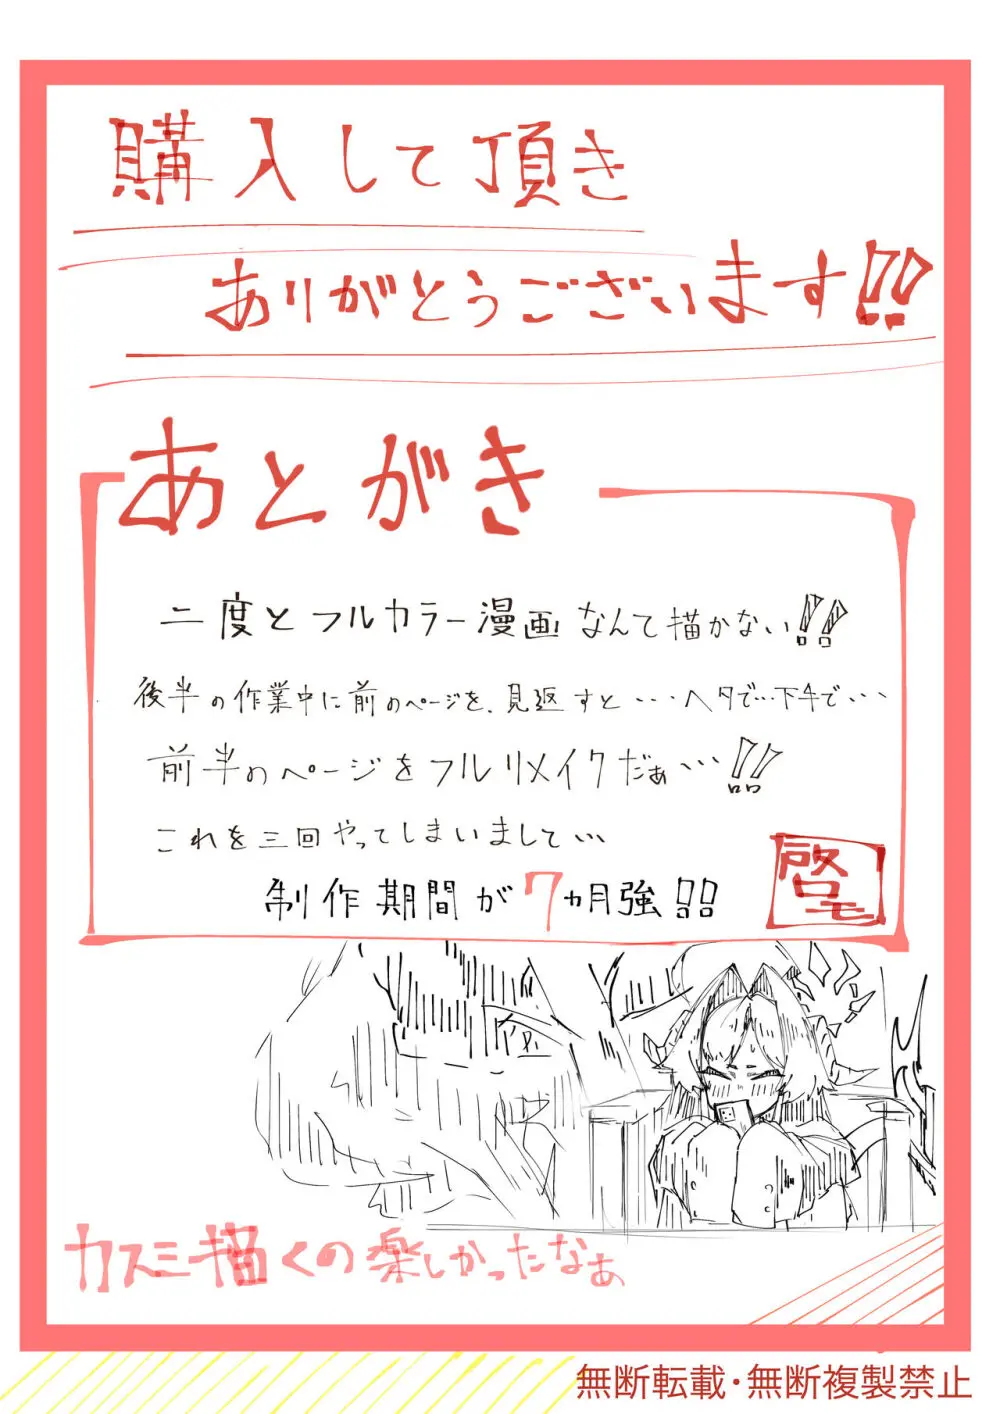 購入して頂き
ありがとうございます!!
あとがき
二度とフルカラー漫画なんて描かない!!
後半の作業中に前のページを、見返すと・・・ヘタで…下手で・・・
前半のページをフルリメイクだぁ・・・!!
これを三回やってしまいまして・・・
制作期間が7ヵ月強!!
啓
ロモ
カスミ描くの楽しかったなぁ
無断転載・無断複製禁止